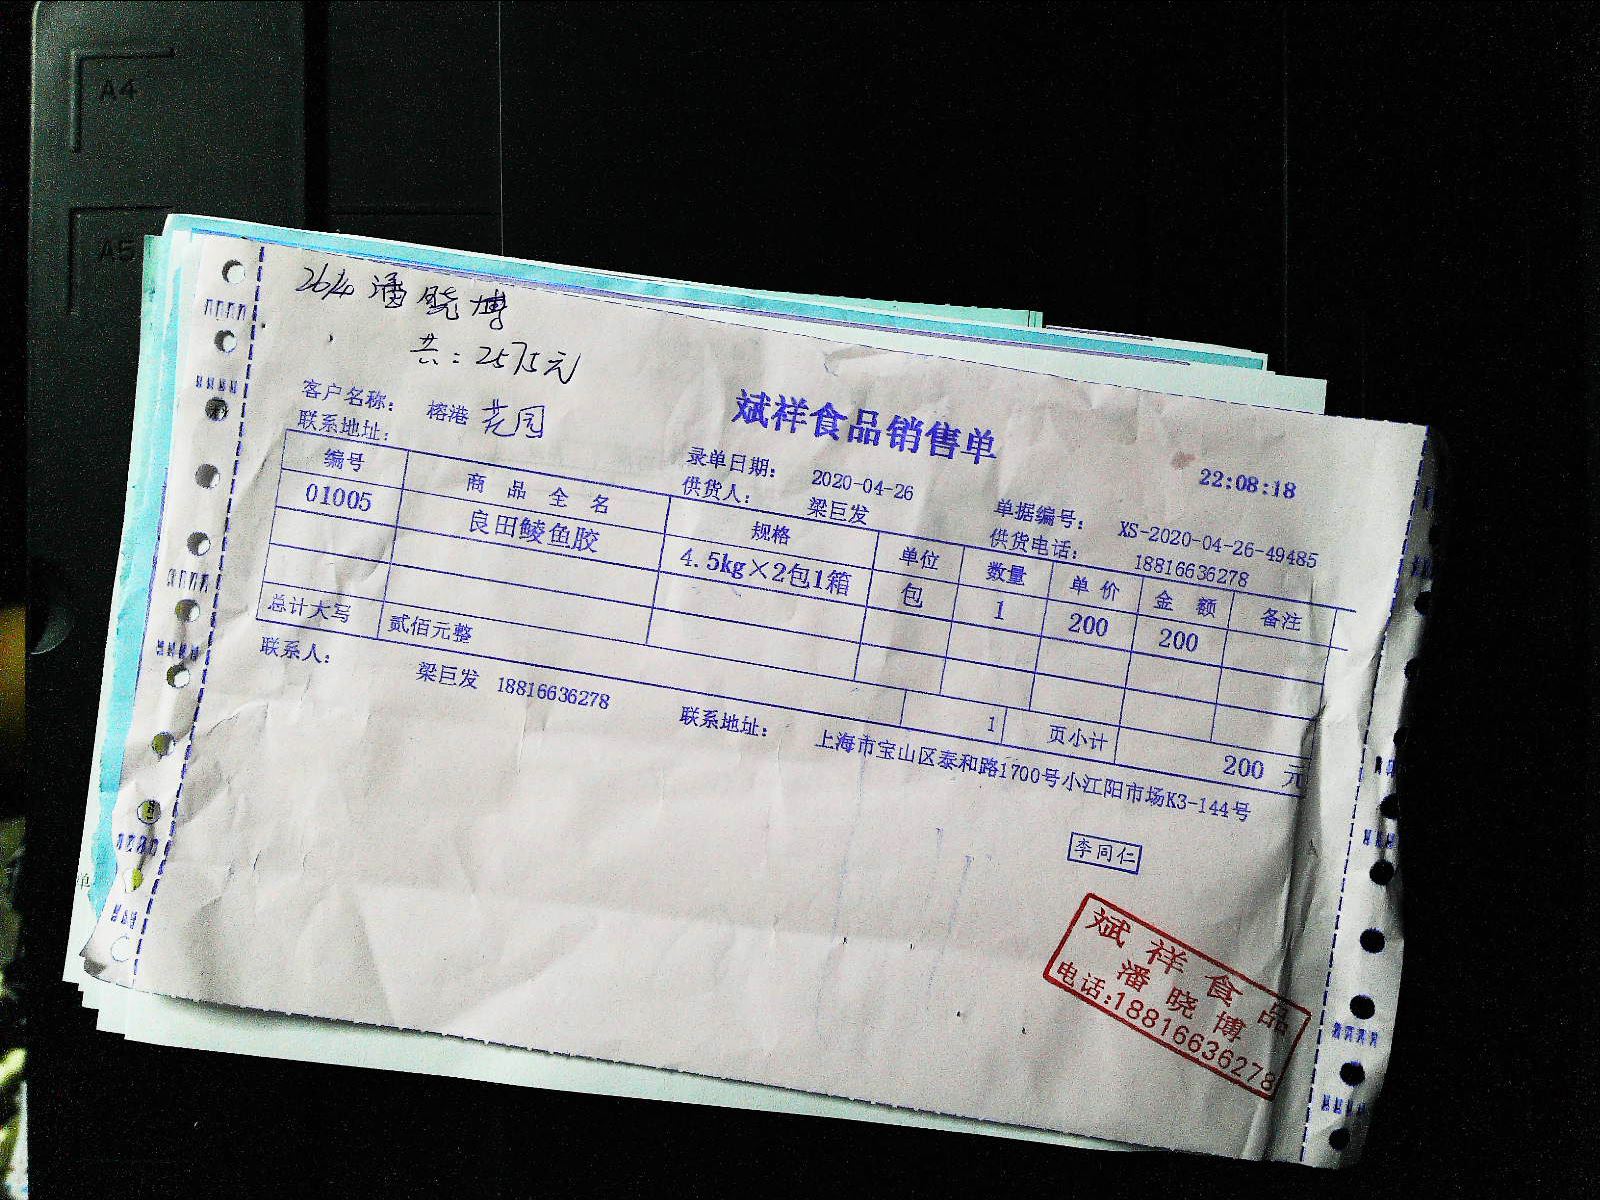 A4
A5
26/4 潘晓博
共：2575元
斌祥食品销售单
22:08:18
客户名称： 榕港 花园
录单日期： 2020-04-26
单据编号： XS-2020-04-26-49485
联系地址：
供货人： 梁巨发
供货电话： 18816636278
编号 商品全名 规格 单位 数量 单价 金额 备注
01005 良田鲮鱼胶 4.5kg×2包1箱 包 1 200 200
总计大写 贰佰元整 1 页小计 200 元
联系人： 梁巨发 18816636278 联系地址： 上海市宝山区泰和路1700号小江阳市场K3-144号
李同仁
斌祥食品
潘晓博
电话:18816636278
单